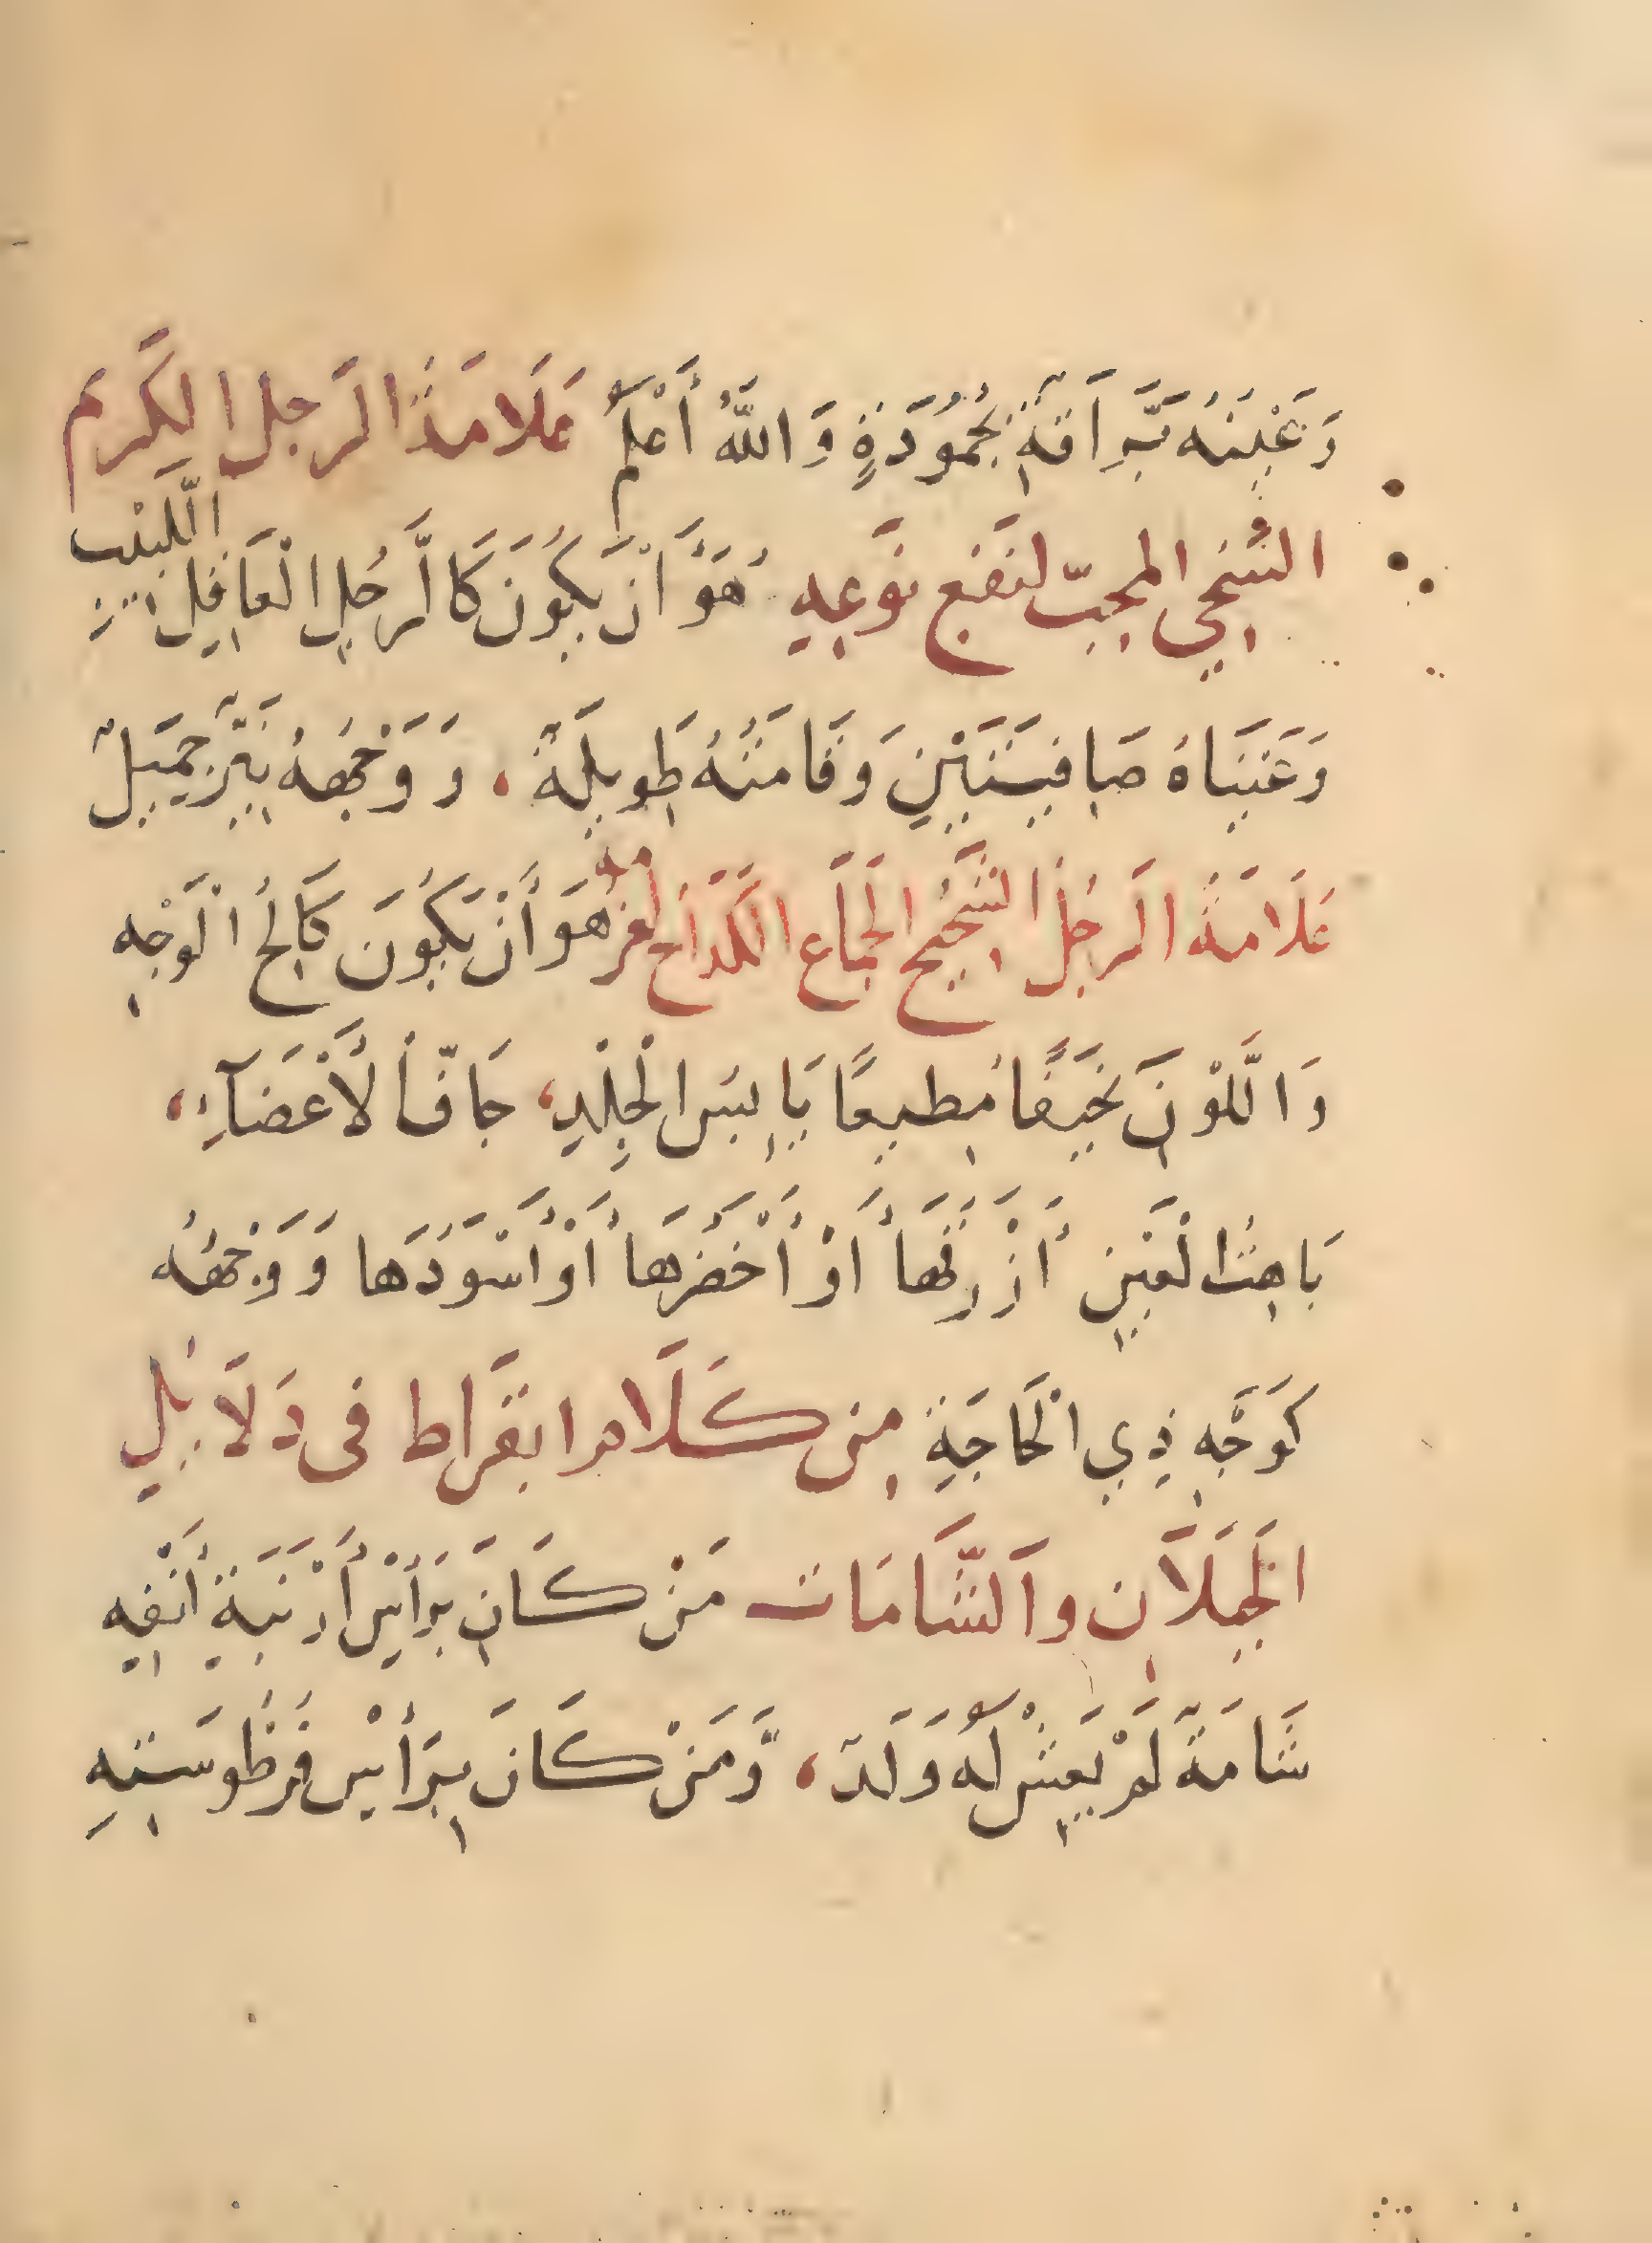 وَعَيْنُهُ بَرَّاقَةٌ بِجُمُودَةٍ وَاللَّهُ أَعْلَمُ عَلَامَةُ الرَجل الكَرِيم
السَّخي المحِبّ لنَفع نَوعِهِ هُوَ أَنْ يَكُونَ كَالرَّجُلِ الْعَاقِلِ اللَّبِيْبِ
وَعَيْنَاهُ صَافِيَتَيْنِ وَقَامَتُهُ طَوِيلَةٌ، وَوَجْهُهُ نَيِّرٌ جَمِيلٌ
عَلَامَةُ الرَجُلِ الشَّحِيْحِ الجَمَّاعِ الكَدَّاحِ لِغَيْرِهِ هُوَ أَنْ يَكُونَ كَالِحُ الْوَجْهِ
وَاللَّوْنِ نَحِيفًا مُطِيعًا يَابِسَ الْجِلْدِ، جَافَّ الأَعْضَآءِ،
بَاهِتُ الْعَيْنِ أَزْرَقُهَا أَوْ أَخْضَرُهَا أَوْ أَسْوَدُهَا وَوَجْهُهُ
كَوَجْهِ ذِي الْحَاجَةِ مِن كَلَامِ ابقَرَاط في دَلَائِلِ
الخِيَلَانِ وَالشَّامَات مَنْ كَانَ بِرَأْسِ أَرْنَبَةِ أَنْفِهِ
شَامَةٌ لَمْ يَعِشْ لَهُ وَلَدٌ، وَّمَنْ كَانَ بِرَأْسِ قُرْطُوسَتِهِ